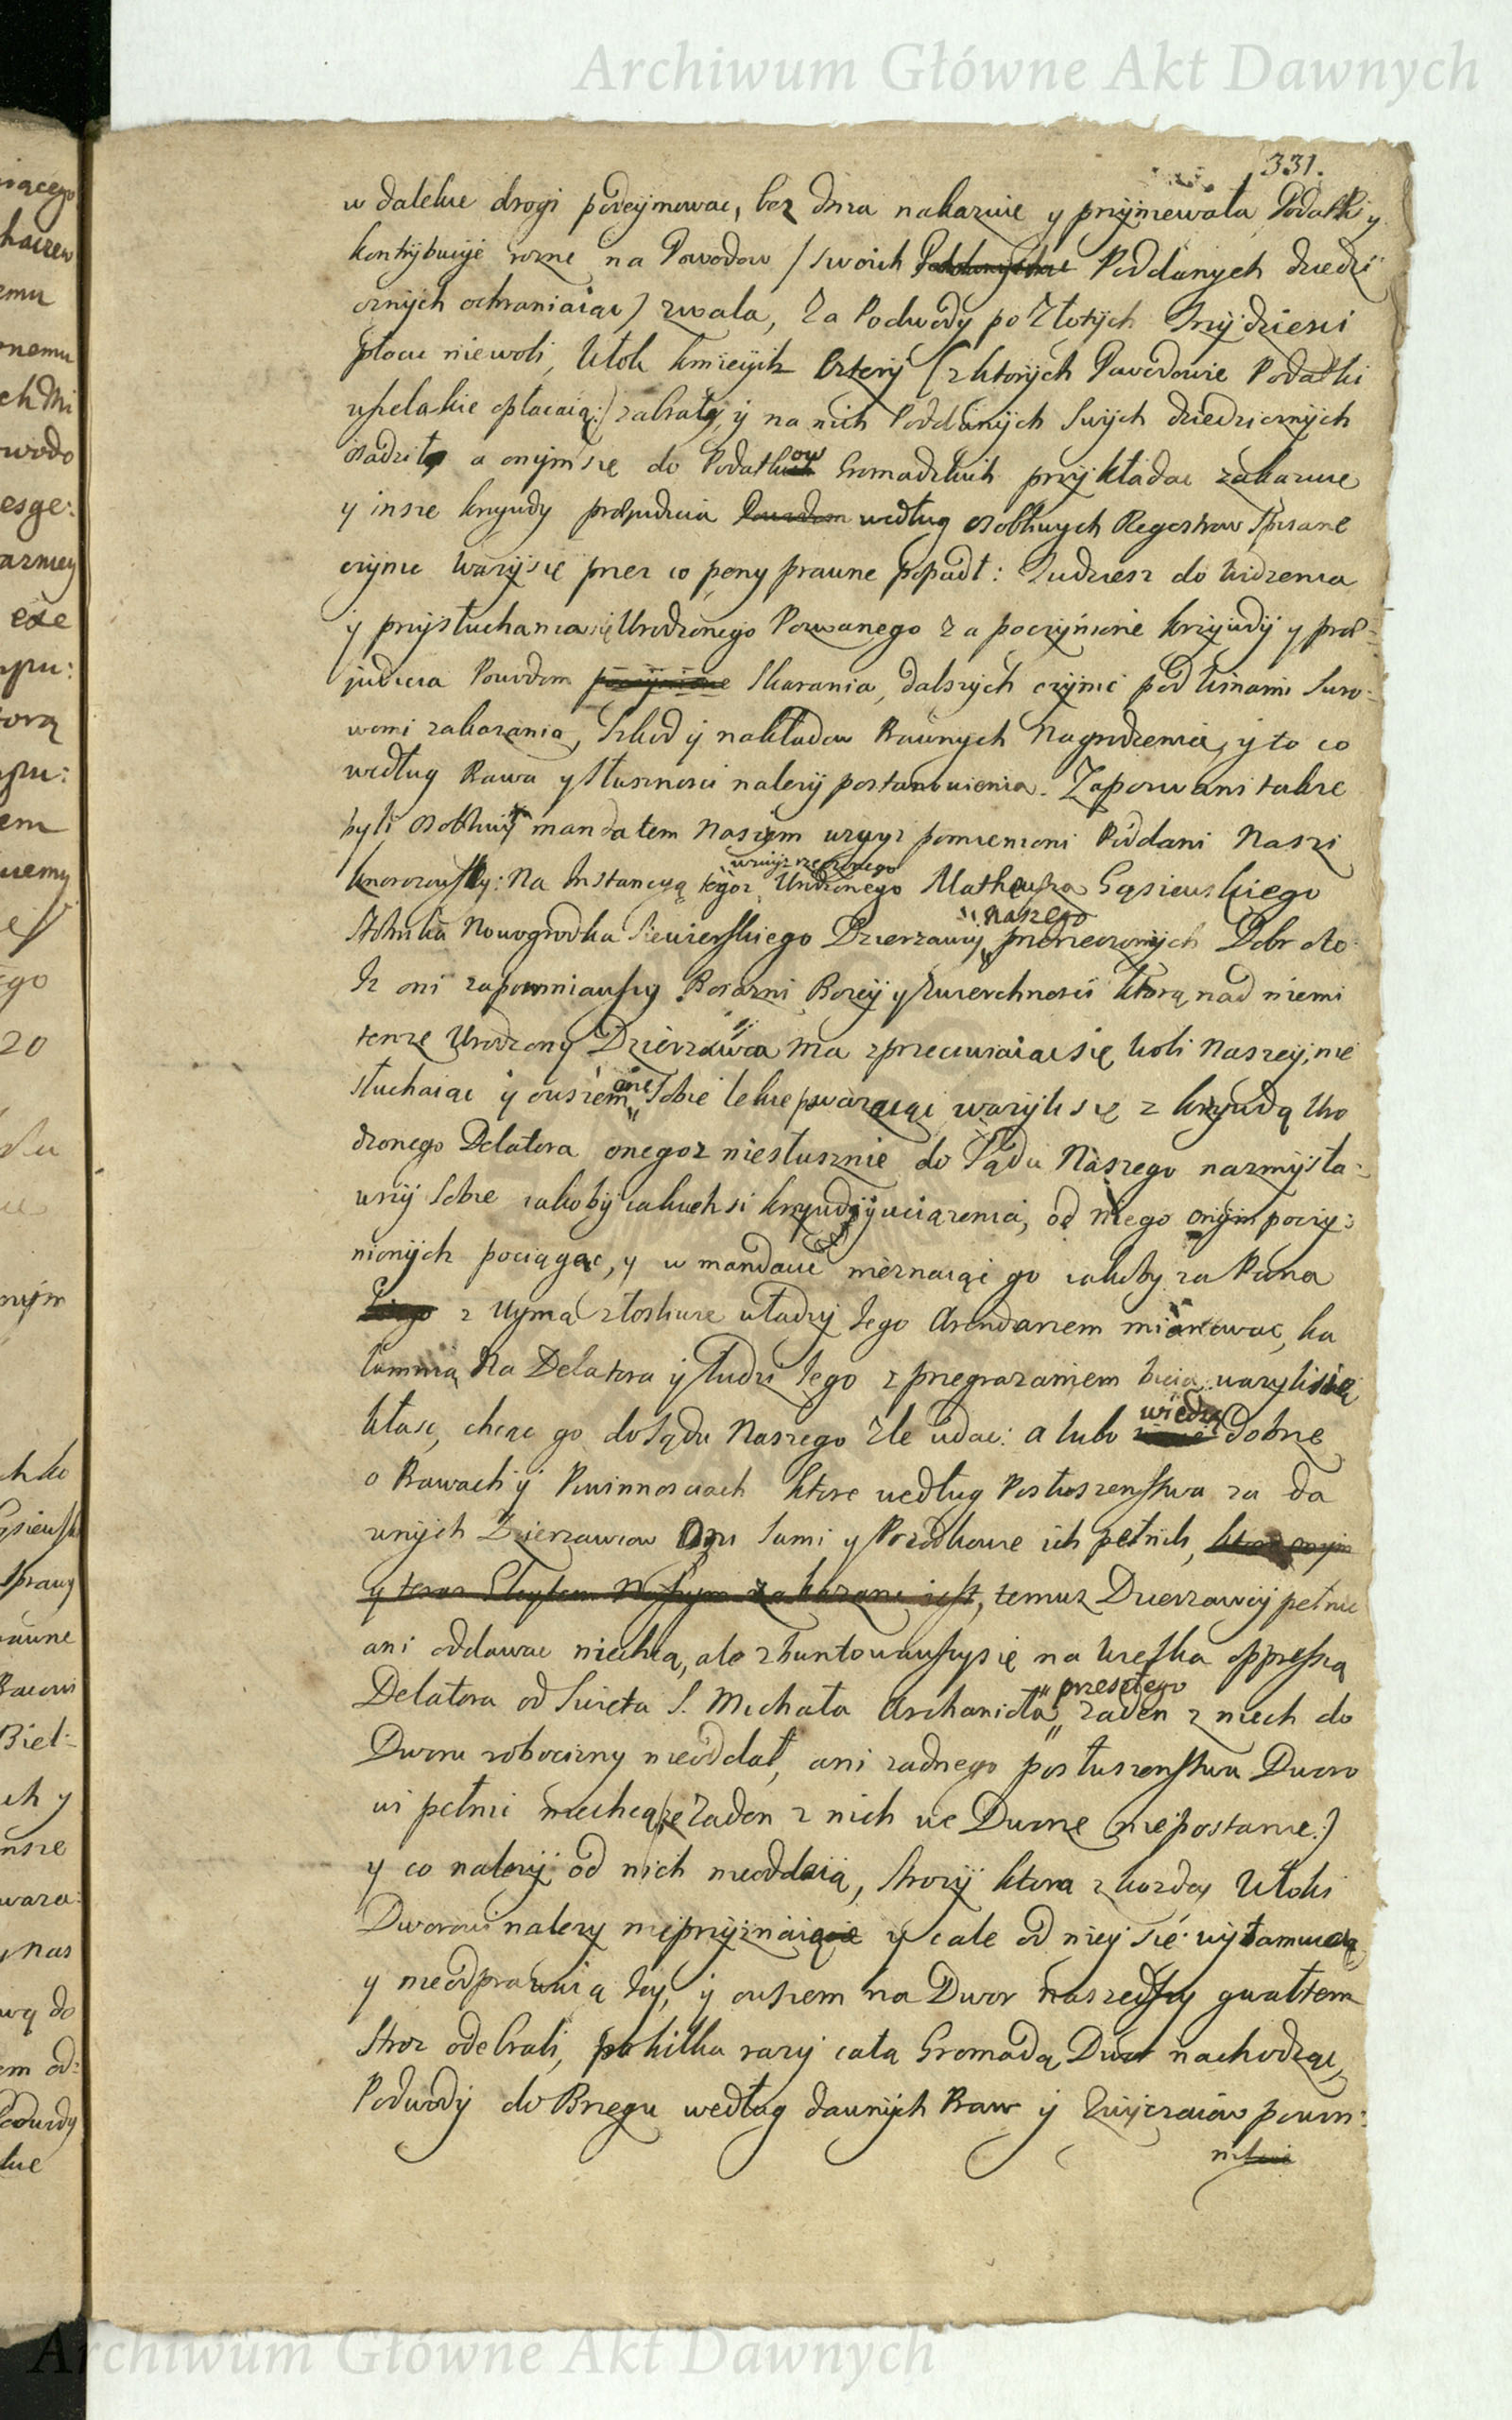 Archiwum Główne Akt Dawnych
331.
w dalekie drogi podeymowac, bez dnia nakazuie y przyimowała Podatki y
kontrybucyie rozne na Powodow / swoich Poddanych dziedzi
cznych ochraniaiąc) zwala, Za Podwody po Złotych Trzydziesci
płacic niewoli, Włok kmiecych Cztery (z ktorych Powodowie Podatki
wszelakie opłacaią:) zabrał, y na nich Poddanych swych dziedzicznych
osadził a onym się do Podatkow Gromadzkich przykładac zakazuie
y insze krzywdy praejudicia według osobliwych Regestrow spisane
czynic wazy się przez co peny prawne popadł: Tudziesz do widzenia
y przysłuchania się Urodzonego Pozwanego za poczynione krzywdy y prae-
judicia Powodom poczynione skarania, dalszych czynic pod winami suro-
wemi zakazania, szkod y nakładow Prawnych nagrodzenia, y to co
według Prawa y słusznosci nalezy postanowienia. Zapozwani takze
byli osobliwym mandatem Naszym wzwyz pomienioni Poddani Naszi
Knorozowscy: Na Instancyą tegoz wzwyz rzeczonego Urodzonego Matheusza Gąsiewskiego
Stolnika Nowogrodka Siewierskiego Dzierzawcy naszego pomienionych Dobr oto
Iz oni zapomniawszy Boiazni Bozey y Zwierchnosci ktorą nad niemi
tenze Urodzony Dzierzawca ma zprzeciwiaiąc się woli Naszey, nie
słuchaiąc y owszem onę sobie lekce powazaiąc wazyli się z krzywdą Uro
dzonego Delatora onegoz niesłusznie do Sądu Naszego o zmysla-
wszy sobie iakoby iakiechsi krzywdy y uciązenia, od niego onym poczy:
nionych pociągac, y w mandacie nieznaiąc go iakoby za Pana
z uymą złoskurze władzy Jego Arendarzem mianowac, ka
lumnią na Delatora y ludzi Jego z przegrazaniem bicia wazyli się
kłasc, chcąc go do Sądu Naszego zle udac: a lubo wiedzą dobrze
o Prawach y Powinnosciach ktore według Posłuszenstwa za da
wnych Dzierzawcow oni sami y Przodkowie ich pełnili, ktore onym
y teraz Elektem Naszym zakazane iest, temuz Dzierzawcy pełnic
ani oddawac niechcą, ale zbuntowawszy się na wielka oppressią
Delatora od Swięta S. Michała Archanioła przeszłego zaden z niech do
Dworu robocizny nieoddał, ani zadnego posłuszenstwa Dworo
wi pełnic niechcą (ze Zaden z nich we Dworze nie postanie:)
y co nalezy od nich nieoddaią, strozy ktora z kozdey Włoki
Dworowi nalezy nieprzyznaią y cale od niey się wyłamuią
y nieodprawuią Jey, y owszem na Dwor naszedszy gwałtem
stroz odebrali, po kilka razy całą Gromadą Dwor nachodząc,
Podwody do Brzegu według dawnych Praw y Zwyczaiow powin:
Archiwum Główne Akt Dawnych